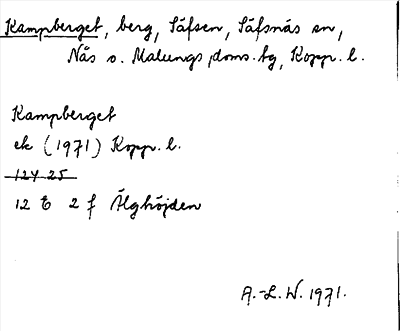 Kampberget, berg, Säfsen, Säfsnäs sn,
Nås o. Malungs doms.tg, Kopp. l.
Kampberget
ek (1971) Kopp. l.
124 25
12 E 2 f Älghöjden
A.-L. W. 1971.